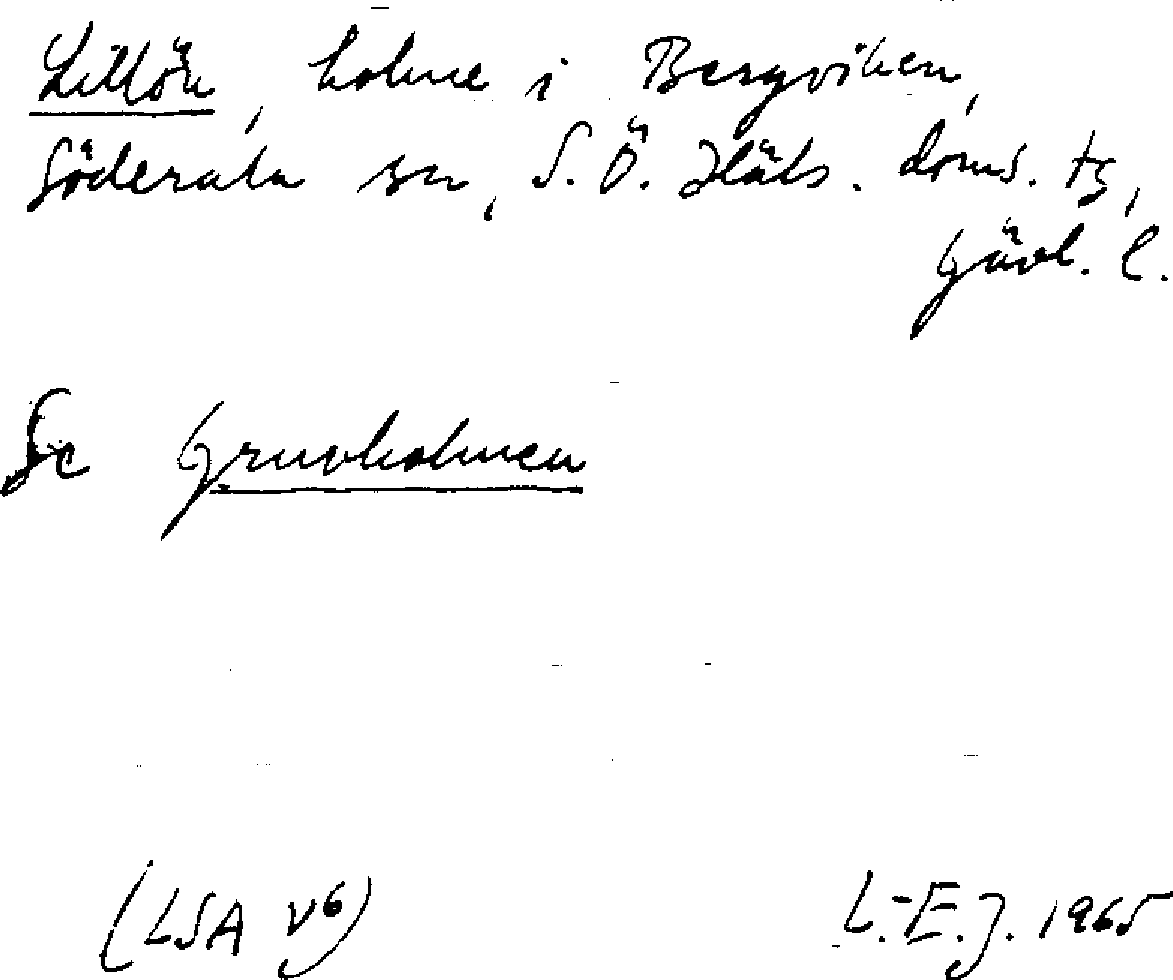 Lillön, holme i Bergviken,
Söderala sn, S.Ö. Häls. doms. tg,
Gävl. l.
Se Gruvholmen
(LSA V6)
L.-E.J. 1965